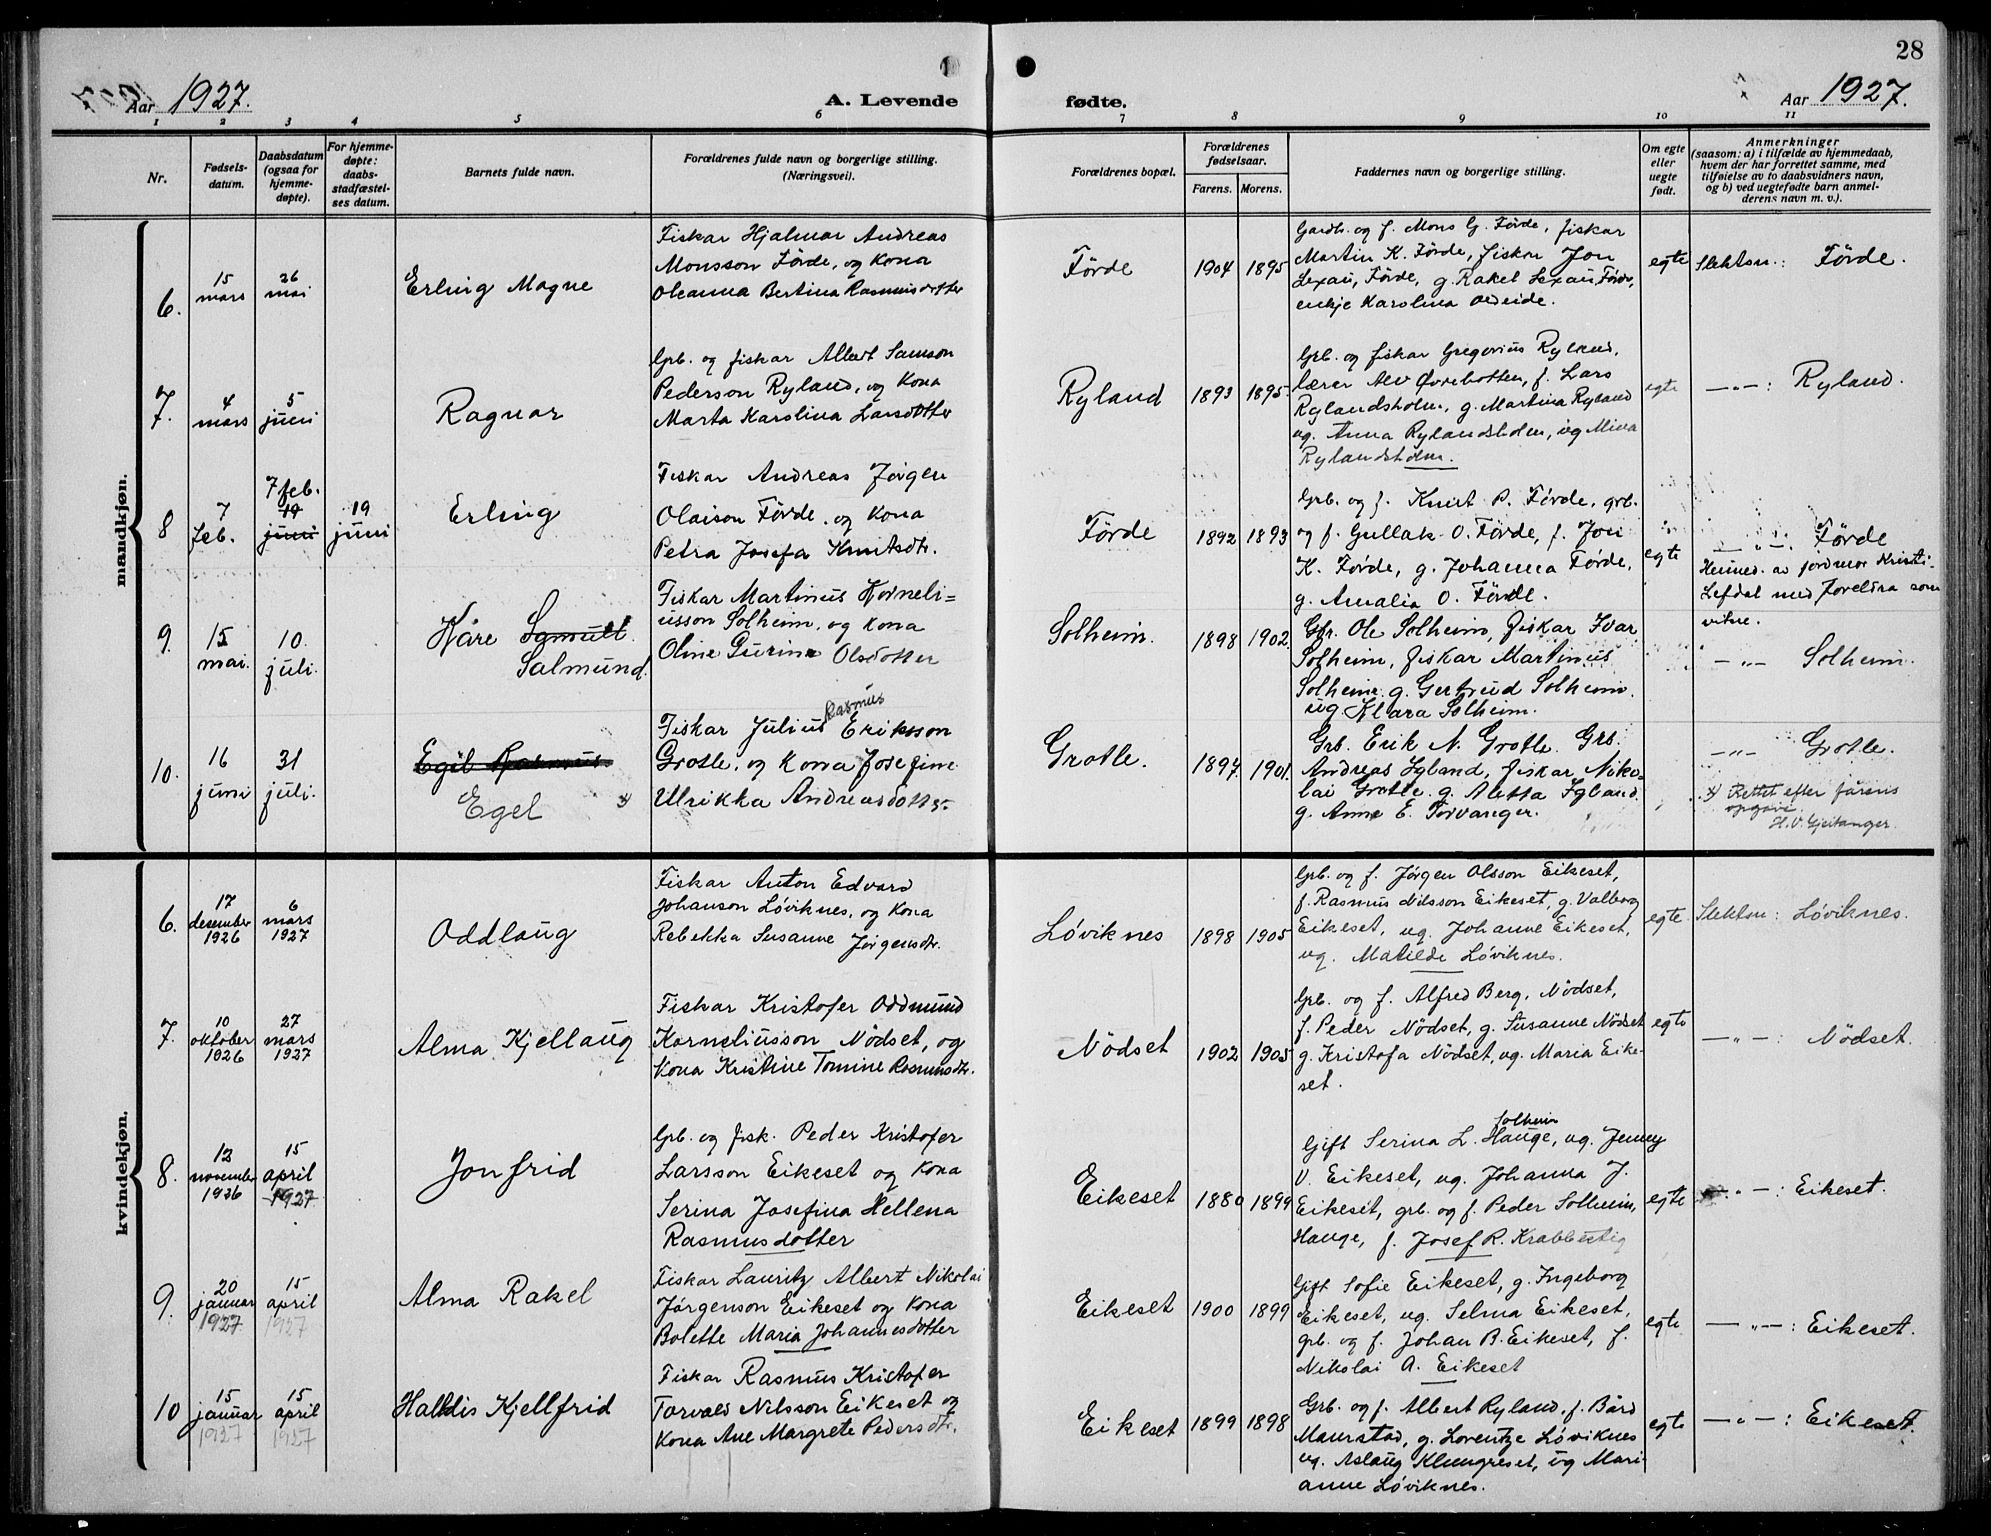 28
Aar 1927.
A. Levende fødte.
Aar 1927.
1 2 3 4 5 6 7 8 9 10 11
Nr.
Fødsels-
datum.
Daabsdatum
(ogsaa for
hjemme-
døpte).
For hjemme-
døpte:
daabs-
stadfæstel-
ses datum.
Barnets fulde navn.
Forældrenes fulde navn og borgerlige stilling.
(Næringsvei).
Forældrenes bopæl.
Forældrenes
fødselsaar.
Farens. Morens.
Faddernes navn og borgerlige stilling.
Om egte
eller
uegte
født.
Anmerkninger
(saasom: a) i tilfælde av hjemmedaab,
hvem der har forrettet samme, med
tilføielse av to daabsvidners navn,
og b) ved uegtefødte barn anmel-
derens navn m. v.).
mandkjøn.
6.
15
mars
26
mai
Erling Magne
Fiskar Hjalmar Andreas
Monsson Förde, og Kona
Oleanna Bertina Rasmusdotter
Förde
1904 1895
Gardb. og f. Mons G. Förde, fiskar
Martin K. Förde, fiskar Jon
Lexau, Förde, g. Rakel Lexau, Förde,
enkje Karolina
egte
Slektsn.: Förde.
7.
4
mars
5
juni
Ragnar
Grb. og fiskar Albert Samson
Pederson Ryland, og Kona
Marta Karolina Larsdotter
Ryland
1893 1895
Grb. og fiskar Gregorius Ryland,
lærer Alv Øvrebotten, f. Lars
Rylandsholm, g. Martina Ryland
ug. Anna Rylandsholm, ug Mina
Rylandsholm.
egte
— „ — : Ryland.
8
7
feb.
7 feb.
19
juni
19
juni
Erling
Fiskar Andreas Jørgen
Olaison Förde. og Kona
Petra Josefa Knutsdtr.
Förde
1892 1893
Grb. og f. Knut P. Förde, grb.
og f. Gullak O. Förde, f. Jon
K. Förde, g. Johanna Förde,
g. Amalia O. Förde.
egte
— „ — : Förde
Heimed. av jordmor Kristi-
Lefdal med foreldra som
vitne.
9.
15
mai.
10.
juli.
Kåre Samuel.
Salmund.
Fiskar Martinus Korneli=
usson Solheim, og Kona
Oline Gurine Olsdotter
Solheim.
1898 1902.
Gfr. Ole Solheim, fiskar Ivar
Solheim, fiskar Martinus
Solheim. g. Gertrud Solheim.
ug. Klara Solheim.
— „ — Solheim.
10.
16
juni
31
juli.
Egil Rasmus.
Egel x)
Rasmus
Fiskar Julius Eriksson
Grotle. og Kona Josefine
Ulrikka Andreasdotter.
Grotle.
1897. 1901.
Grb. Erik N. Grotle. Grb.
Andreas Igland, fiskar Niko-
lai Grotle. g. Aletta Igland.
g. Anne E. Torvanger.
— „ — Grotle.
x) Rettet efter farens
opgave.
H.V. Gjeitanger.
kvindekjøn.
6.
17
desember
1926
6
mars
1927
Oddlaug
Fiskar Anton Edvard
Johanson Løviknes, og Kona
Rebekka Susanne Jørgensdtr.
Løviknes
1898 1905
Grb. og f. Jörgen Olsson Eikeset,
f. Rasmus Nilsson Eikeset, g. Valborg
Eikeset, ug. Johanne Eikeset,
ug. Matilde Løviknes.
egte
Slektsn: Løviknes.
7.
10
oktober
1926
27
mars
1927
Alma Kjellaug
Fiskar Kristofer Oddmund
Korneliusson Nödset, og
Kona Kristine Tomine Rasmusdtr.
Nödset
1902 1905
Grb. og f. Alfred Berg, Nödset,
f. Peder Nödset, g. Susanne Nödset
g. Kristofa Nödset, ug. Maria Eike-
set.
egte
— „ — : Nödset.
8.
12
november
1926
15
april
1927
Jonfrid
Grb. og fisk. Peder Kristofer
Larsson Eikeset og Kona
Serina Josefina Hellena
Rasmusdotter
Eikeset
1880 1899
Solheim
Gift Serina L. Hauge, ug. Jenny
V. Eikeset, ug. Johanna J.
Eikeset, grb. og f. Peder Solheim,
Hauge, f. Josef R. Krabbestig
egte
— „ — : Eikeset.
9.
20
januar
1927
15
april
1927
Alma Rakel
Fiskar Lauritz Albert Nikolai
Jørgenson Eikeset og Kona
Bolette Maria Johannesdotter
Eikeset
1900 1899
Gift Sofie Eikeset, g. Ingeborg
Eikeset, ug. Selma Eikeset,
grb. og f. Johan B. Eikeset, f.
Nikolai A. Eikeset
egte
— „ — : Eikeset.
10
15
januar
1927
15
april
1927
Halldis Kjellfrid
Fiskar Rasmus Kristofer
Torvald Nilsson Eikeset og
Kona Ane Margrete Pedersdtr.
Eikeset
1899 1898
Grb. og f. Albert Ryland, f. Bård
Maurstad, g. Lorentze Løviknes
ug. Aslaug Klungreset, ug Mari-
anne Løviknes.
egte
— „ — : Eikeset.